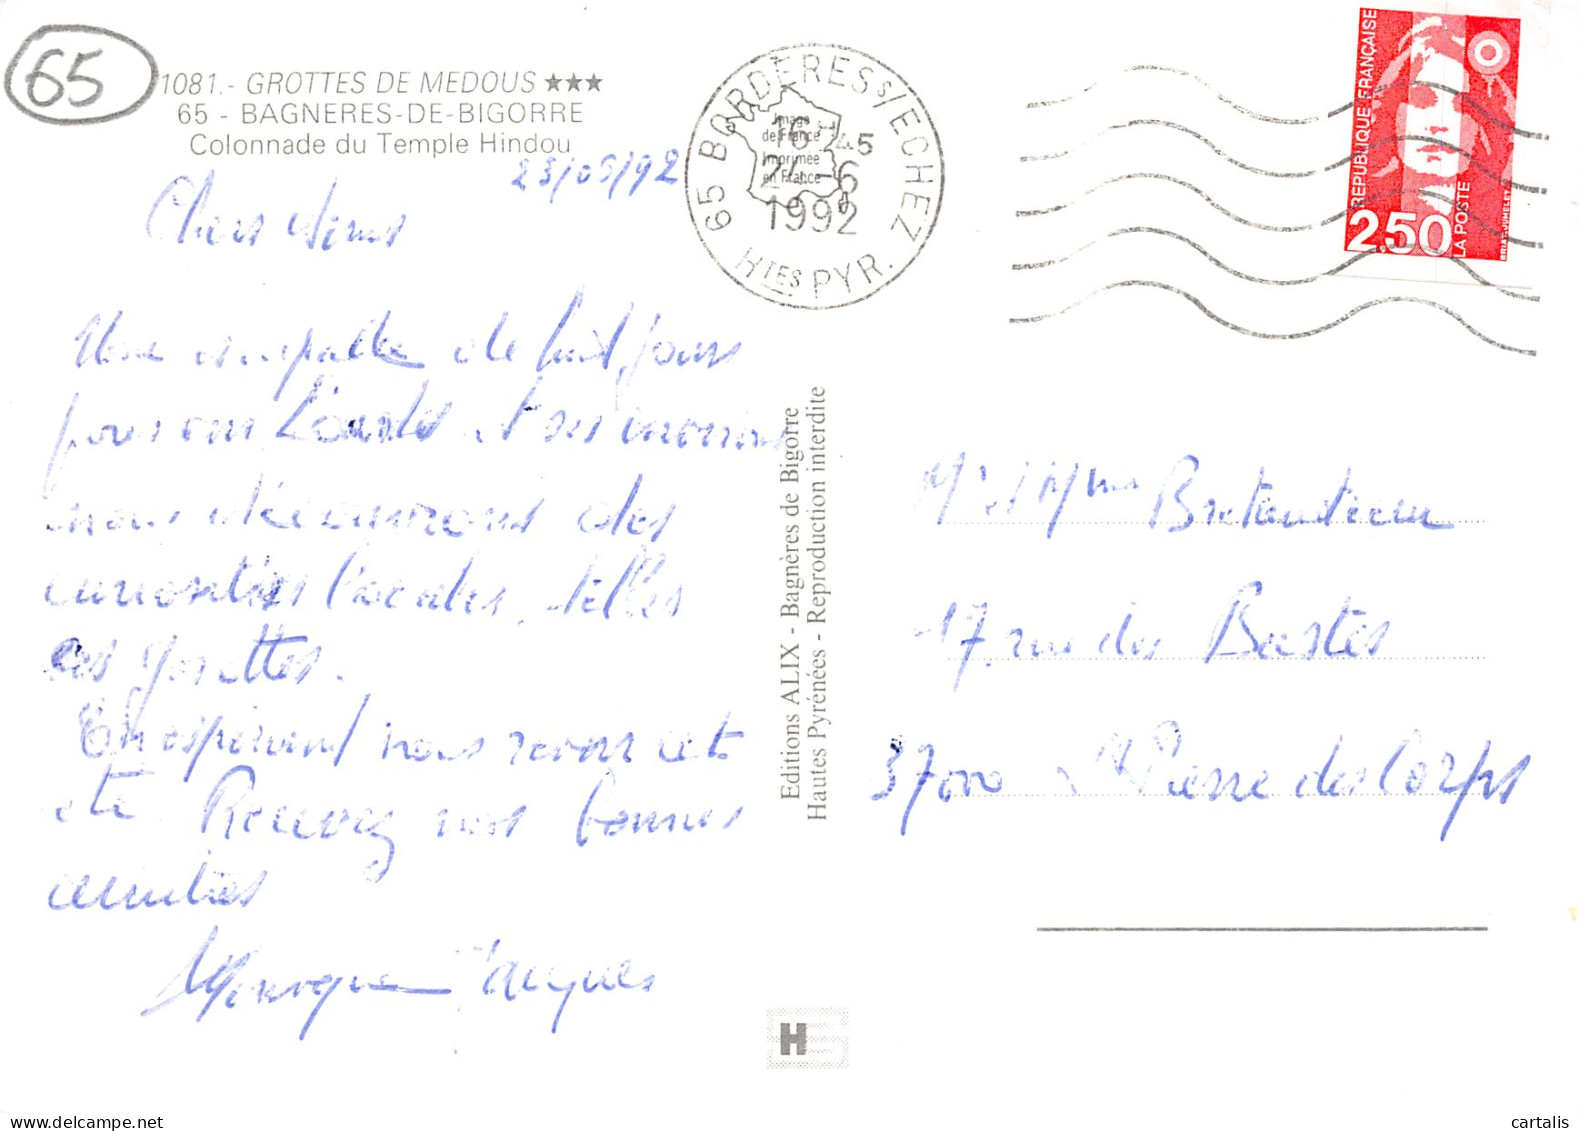 65
1081.- GROTTES DE MEDOUS ★★★
65 - BAGNERES-DE-BIGORRE
Colonnade du Temple Hindou
23/06/92
Chers
Une de huit jours
pour Lourdes et ses
nous découvrons des
curiosités locales, telles
ces grottes.
En espérant nous revoir cet
été Recevez nos bonnes
amitiés
Monique Jacques
65 BORDERES S/ECHEZ
Image
de France
Imprimée
en France
16 45
24 -6
1992
HTES PYR.
REPUBLIQUE FRANÇAISE
2,50
LA POSTE
BRIAT JUMELET
Editions ALIX - Bagnères de Bigorre
Hautes Pyrénées - Reproduction interdite
Mr et Mme
17 rue des
37000 St Pierre des Corps
H
www.delcampe.net
cartalis